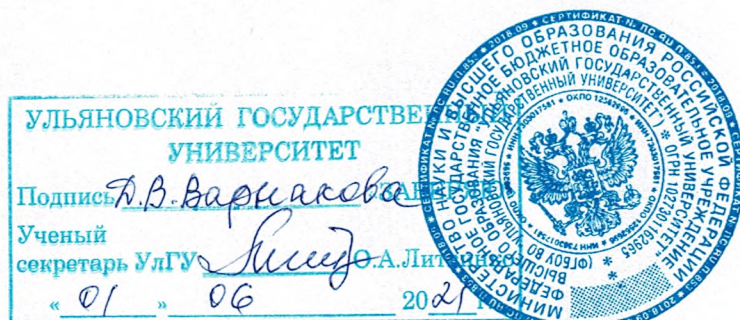 УЛЬЯНОВСКИЙ ГОСУДАРСТВЕННЫЙ
УНИВЕРСИТЕТ
Подпись Д.В. Варнакова ЗАВЕРЯЮ
Ученый
секретарь УлГУ О.А.Литвинко
« 01 » 06 2021 г.
МИНИСТЕРСТВО НАУКИ И ВЫСШЕГО ОБРАЗОВАНИЯ РОССИЙСКОЙ ФЕДЕРАЦИИ
ФЕДЕРАЛЬНОЕ ГОСУДАРСТВЕННОЕ БЮДЖЕТНОЕ ОБРАЗОВАТЕЛЬНОЕ УЧРЕЖДЕНИЕ
ВЫСШЕГО ОБРАЗОВАНИЯ "УЛЬЯНОВСКИЙ ГОСУДАРСТВЕННЫЙ УНИВЕРСИТЕТ" * ОГРН 1027301162965
(ФГБОУ ВО "УЛЬЯНОВСКИЙ ГОСУДАРСТВЕННЫЙ УНИВЕРСИТЕТ")